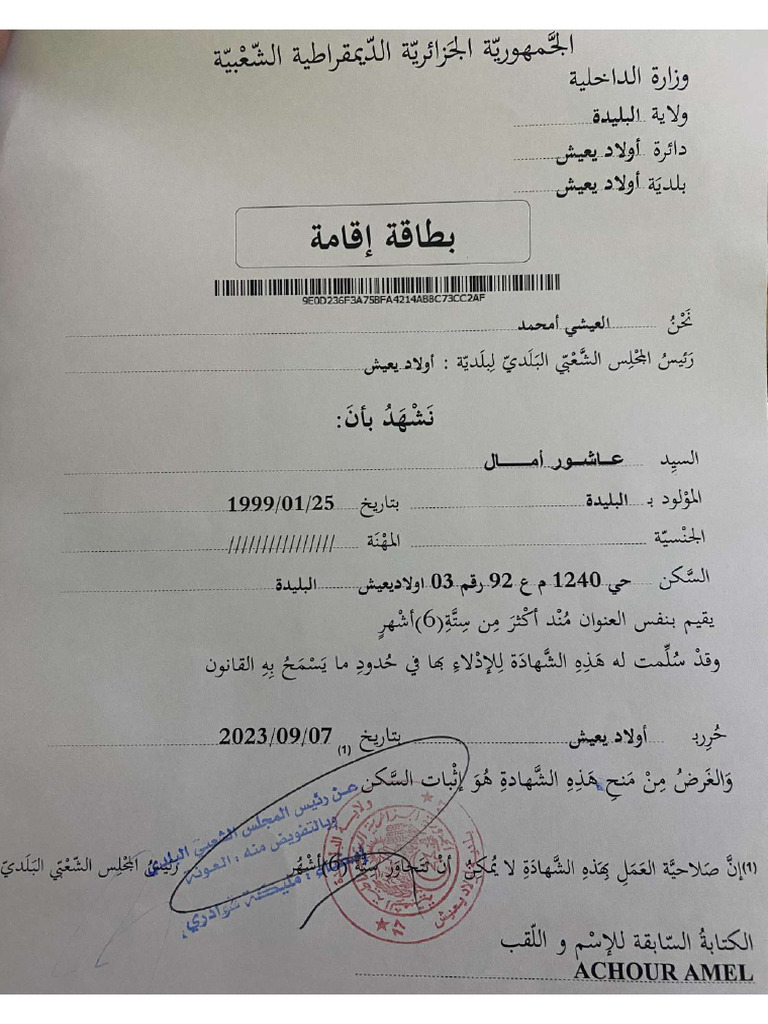 الجَّمهوريّة الجَزائريّة الدّيمقراطية الشّعْبيّة
وزارة الداخلية
ولاية البليدة
دائرة أولاد يعيش
بلديَة أولاد يعيش
بطاقة إقامة
9E0D236F3A75BFA4214AB8C73CC2AF
نَحْنُ العيشي أمحمد
رَئيسُ المجْلِس الشَّعْبّي البَلَديّ لِبلَديّة : أولاد يعيش
نَشْهَدُ بأنَ:
السيِد عـاشـور أمـــال
المؤلود بـ البليدة بتاريخ 1999/01/25
الجنْسيّة المهْنَة ////////////////
السَّكن حي 1240 م ع 92 رقم 03 اولاديعيش البليدة
يقيم بنفس العنوان مُنْد أكْثرَ مِن سِتَّةِ(6)أشْهرٍ
وقدْ سُلِّمت له هَذِهِ الشَّهادَة لِلإدْلاءِ بها في حُدودِ ما يَسْمَحُ بِهِ القانون
حُرِربـ أولاد يعيش بتاريخ 2023/09/07
(1)
والغَرضُ مِنْ مَنحِ هَذِهِ الشَّهادةِ هُوَ إثْبات السَّكن
عـن رئيس المجلس الشعبي البلدي
وبالتفويض منه : العونة
مليكة شوادري
(1)إنَّ صَلاحيَّة العَمَلِ بِهَذِهِ الشَّهادَةِ لا يُمكِنُ أنْ تَتَجاوَز سِتَّةَ (6)أشْهُرٍ رَئيسُ المجْلِس الشّعْبّي البَلَديّ
أولاد يعيش
17
الكتابةُ السّابقة للإسْم و اللّقب
ACHOUR AMEL